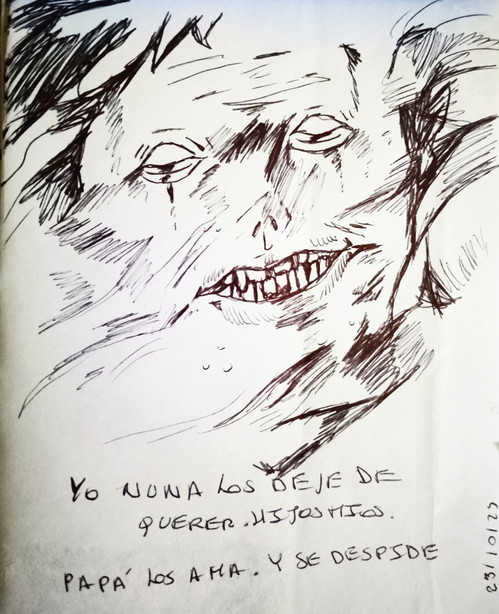 YO NUNA LOS DEJE DE
QUERER. HIJOS MIOS.
PAPÁ LOS AMA. Y SE DESPIDE
23/10/23